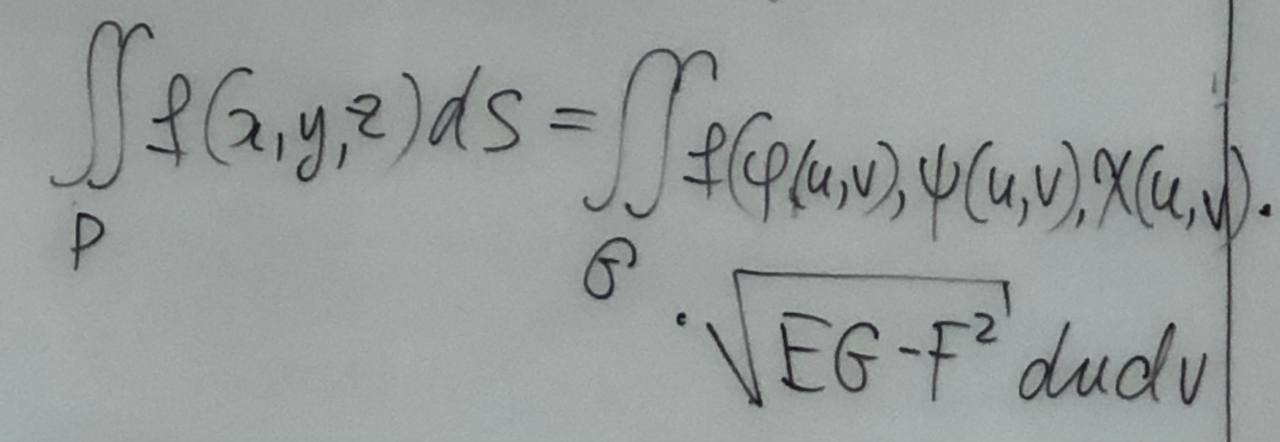 ∬_P f(x,y,z)dS = ∬_G f(φ(u,v), ψ(u,v), χ(u,v)·
·√(EG-F²) dudv